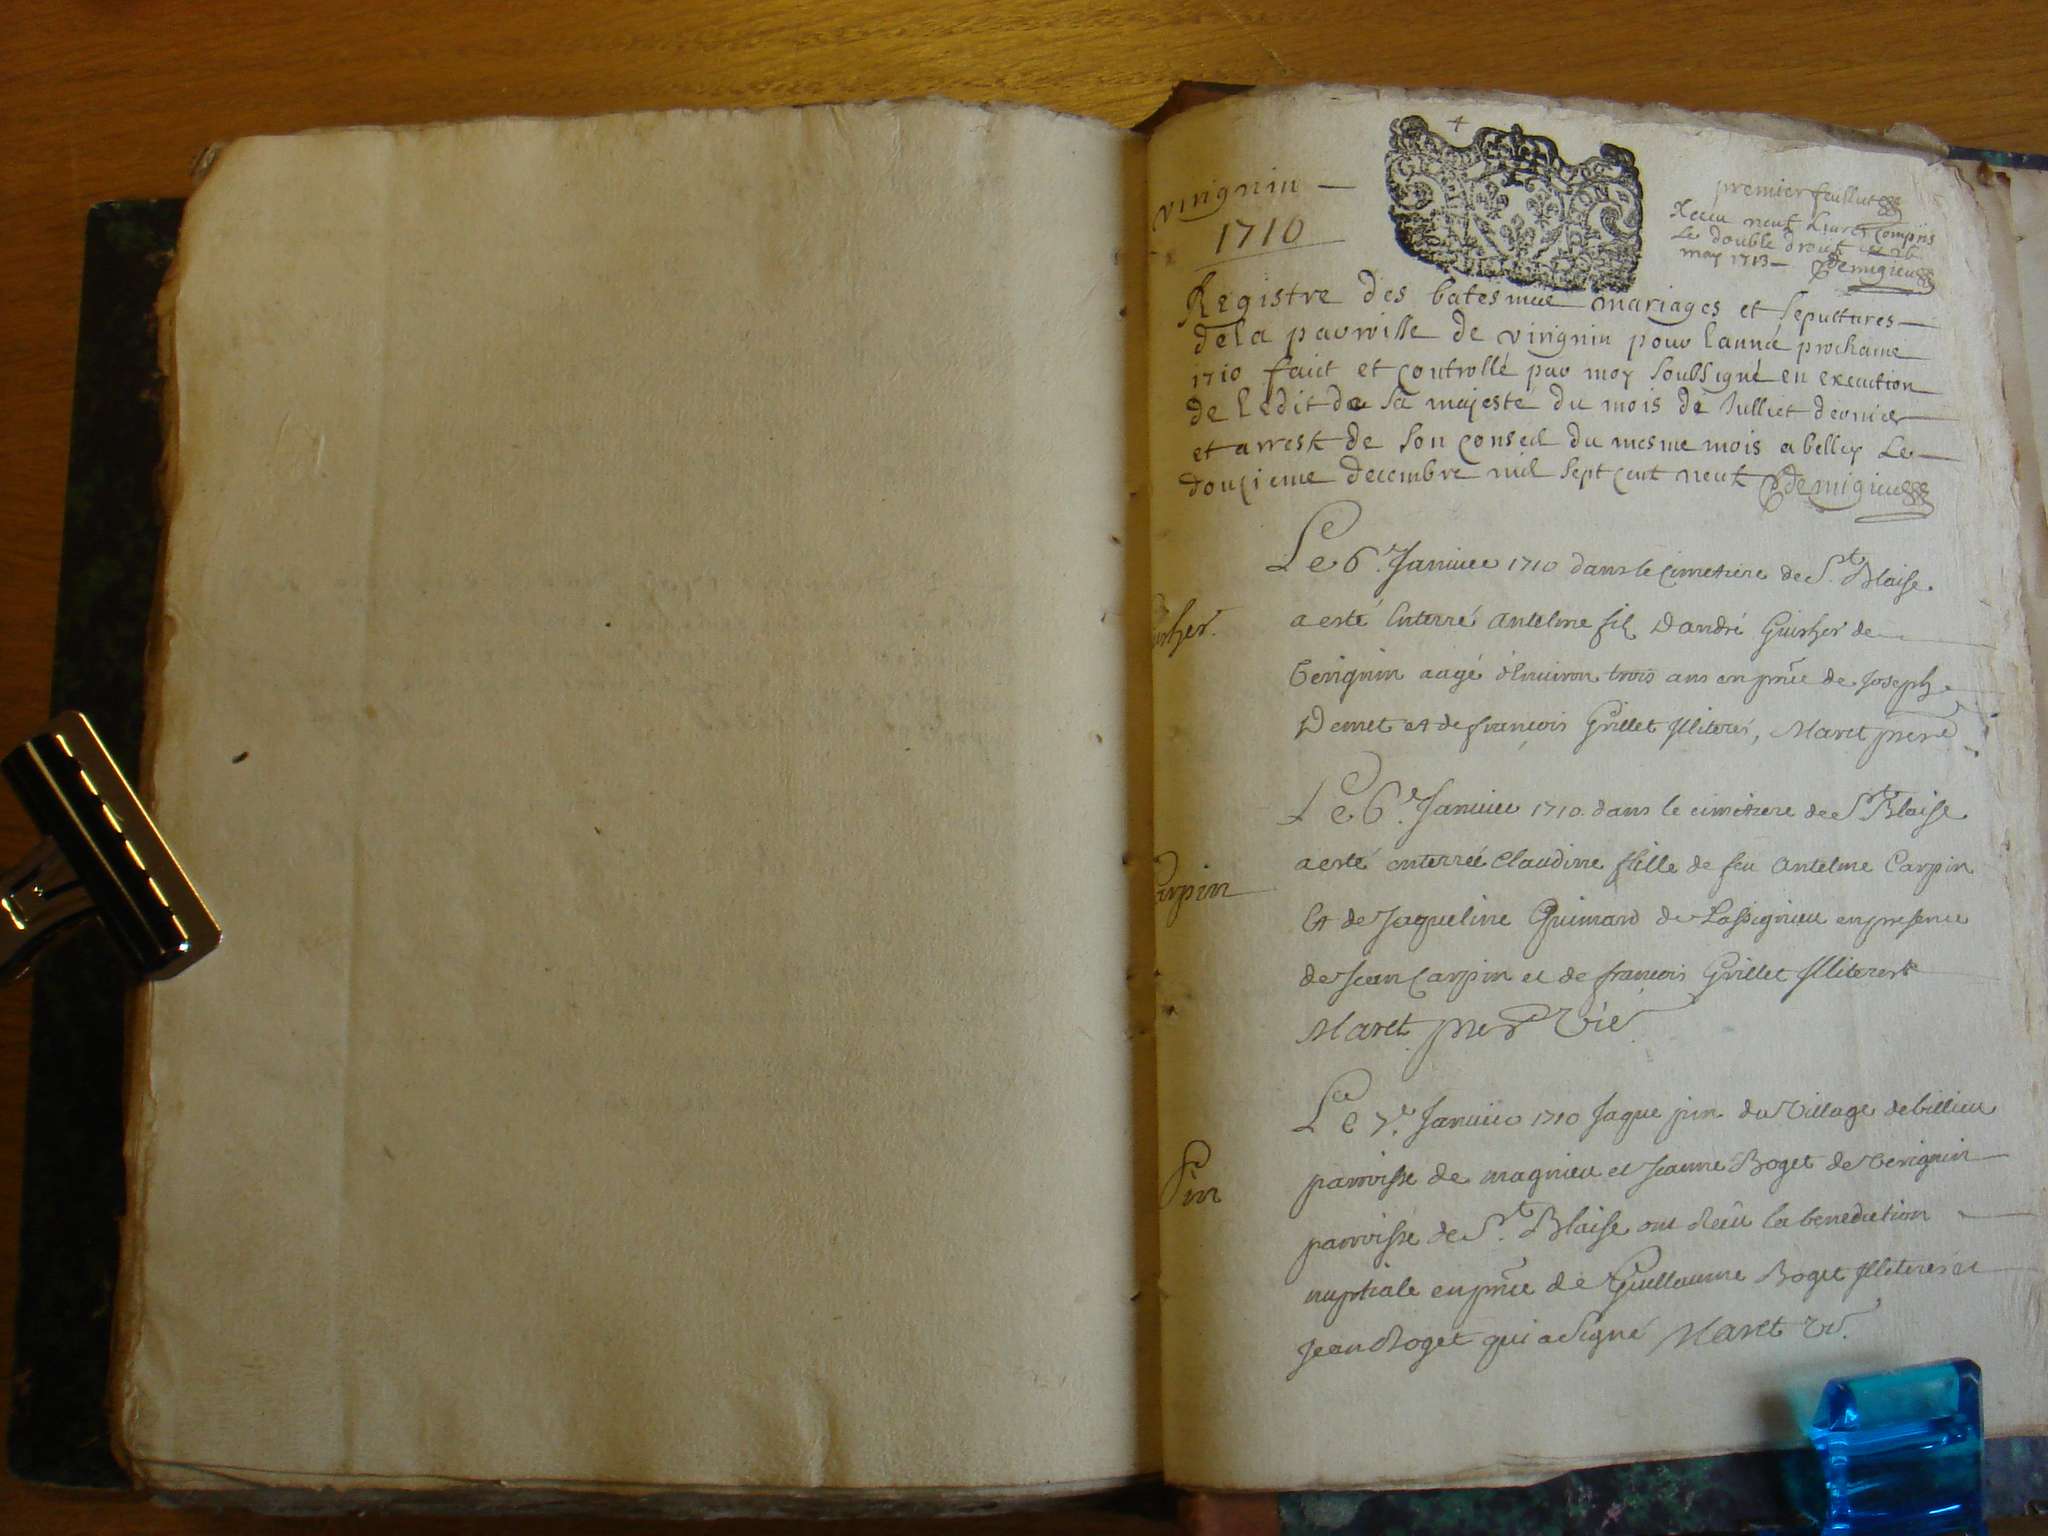 virignin
1710
premier feuillet
Receu neuf liards compris
le double droit ce 26
may 1713 Demigieu
Registre des batesmee mariages et sepultures
de la parroisse de virignin pour lanné prochaine
1710 faict et controllé par moy soubsigné en execution
de ledit de sa majesté du mois de Julliet dernier
et arrest de son conseil du mesme mois a belley le
douzieme decembre mil sept cent neuf Demigieu
Le 6e Januier 1710 dans le cimetiere de St Blaise
a esté enterré antelme fils d'andré Guirher de
Verignin aagé d'enuiron trois ans en pnce de Joseph
Demet et de francois Grillet Illiterés, Maret prere
Le 6e Januier 1710 dans le cimetiere de St Blaise
a esté enterrée Claudine fille de feu antelme Carpin
et de Jaqueline Guimard de Lassignieu en presence
de Jean Carpin et de francois Grillet Illiterés
Maret prer vié
Carpin
Le 7e Januier 1710 Jaque pin du Village de billieu
parroisse de magnieu et Jeanne Roget de Verignin
parroisse de St Blaise ont Reçu la benediction
nuptiale en pnce de Guillaume Roget Illiterés et
Jean Roget qui a signé Maret vi.
Pin